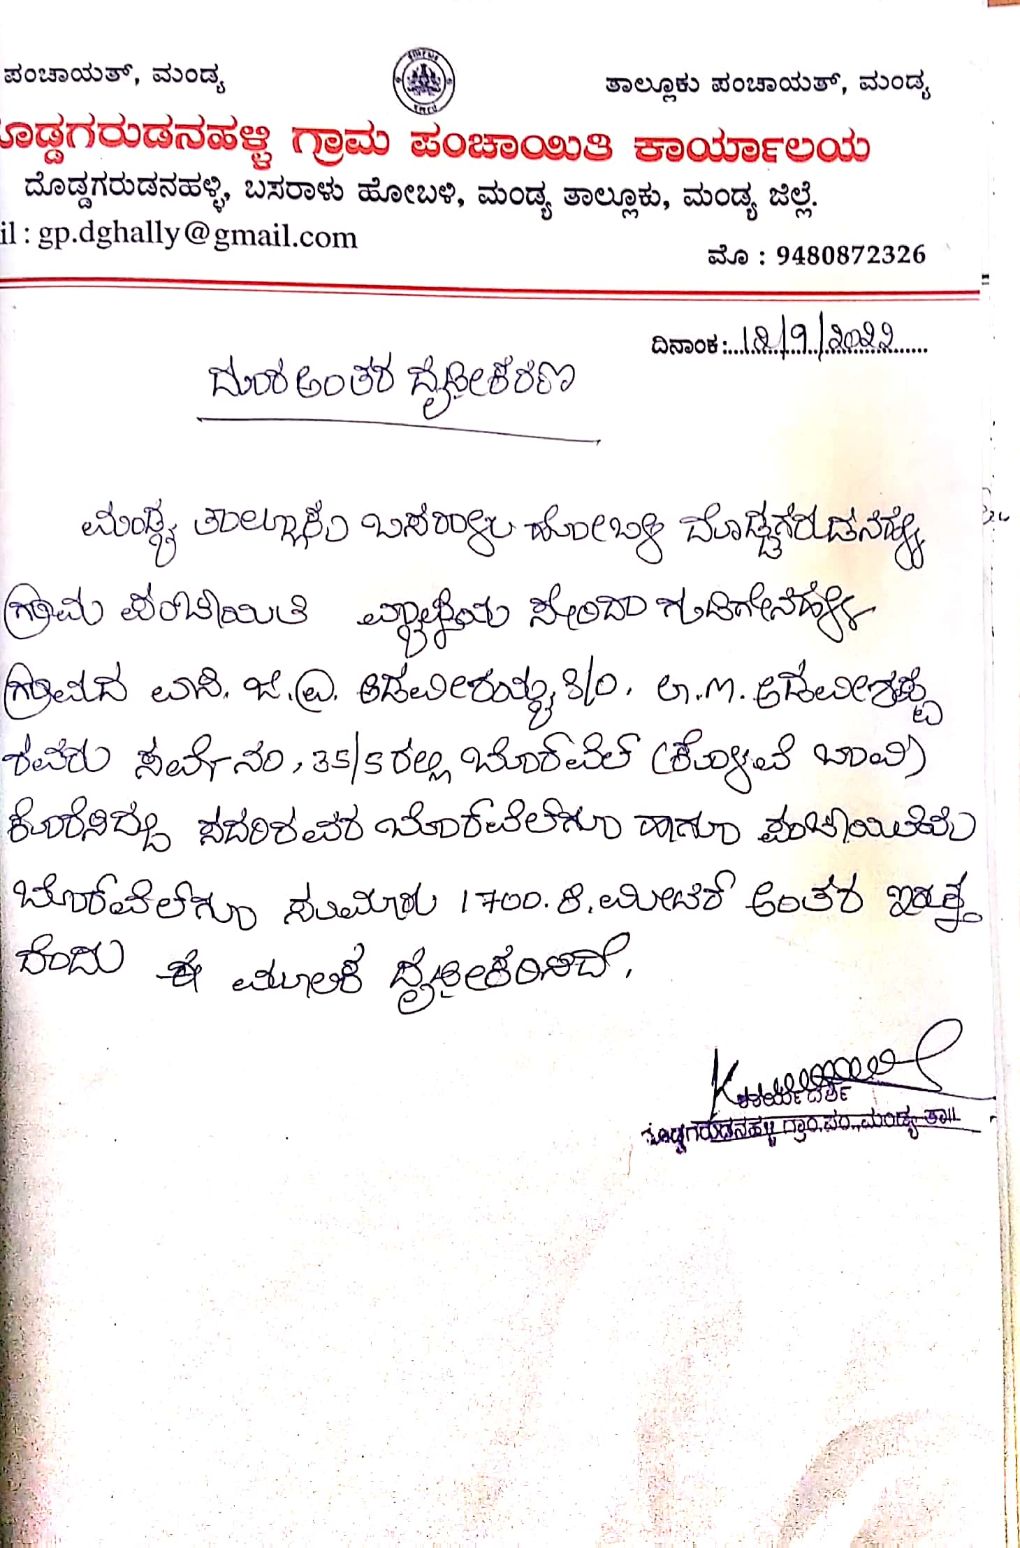 ಪಂಚಾಯತ್, ಮಂಡ್ಯ
ತಾಲ್ಲೂಕು ಪಂಚಾಯತ್, ಮಂಡ್ಯ
ದೊಡ್ಡಗರುಡನಹಳ್ಳಿ ಗ್ರಾಮ ಪಂಚಾಯಿತಿ ಕಾರ್ಯಾಲಯ
ದೊಡ್ಡಗರುಡನಹಳ್ಳಿ, ಬಸರಾಳು ಹೋಬಳಿ, ಮಂಡ್ಯ ತಾಲ್ಲೂಕು, ಮಂಡ್ಯ ಜಿಲ್ಲೆ.
il : gp.dghally@gmail.com
ಮೊ : 9480872326
ದಿನಾಂಕ:...12/9/2022......
ದೂರ ಅಂತರ ದೃಢೀಕರಣ
ಮಂಡ್ಯ ತಾಲ್ಲೂಕು ಬಸರಾಳು ಹೋಬಳಿ ದೊಡ್ಡಗರುಡನಹಳ್ಳಿ
ಗ್ರಾಮ ಪಂಚಾಯಿತಿ ವ್ಯಾಪ್ತಿಯ ಸೇರಿದ
ಗ್ರಾಮದ ವಾಸಿ. ಜಿ. S/O.
ರವರು ಸರ್ವೆ ನಂ, 35/5 ರಲ್ಲಿ ಬೋರ್‌ವೆಲ್ (ಕೊಳವೆ ಬಾವಿ)
ಕೊರೆಸಿದ್ದು ಸದರಿರವರ ಬೋರ್‌ವೆಲ್‌ಗೂ ಹಾಗೂ ಪಂಚಾಯಿತಿಯ
ಬೋರ್‌ವೆಲ್‌ಗೂ ಸುಮಾರು 1700. ಕಿ. ಮೀಟರ್ ಅಂತರ ಇರುತ್ತ
ದೆಂದು ಈ ಮೂಲಕ ದೃಢೀಕರಿಸಿದೆ.
ಕಾರ್ಯದರ್ಶಿ
ದೊಡ್ಡಗರುಡನಹಳ್ಳಿ ಗ್ರಾ.ಪಂ., ಮಂಡ್ಯ ತಾ||